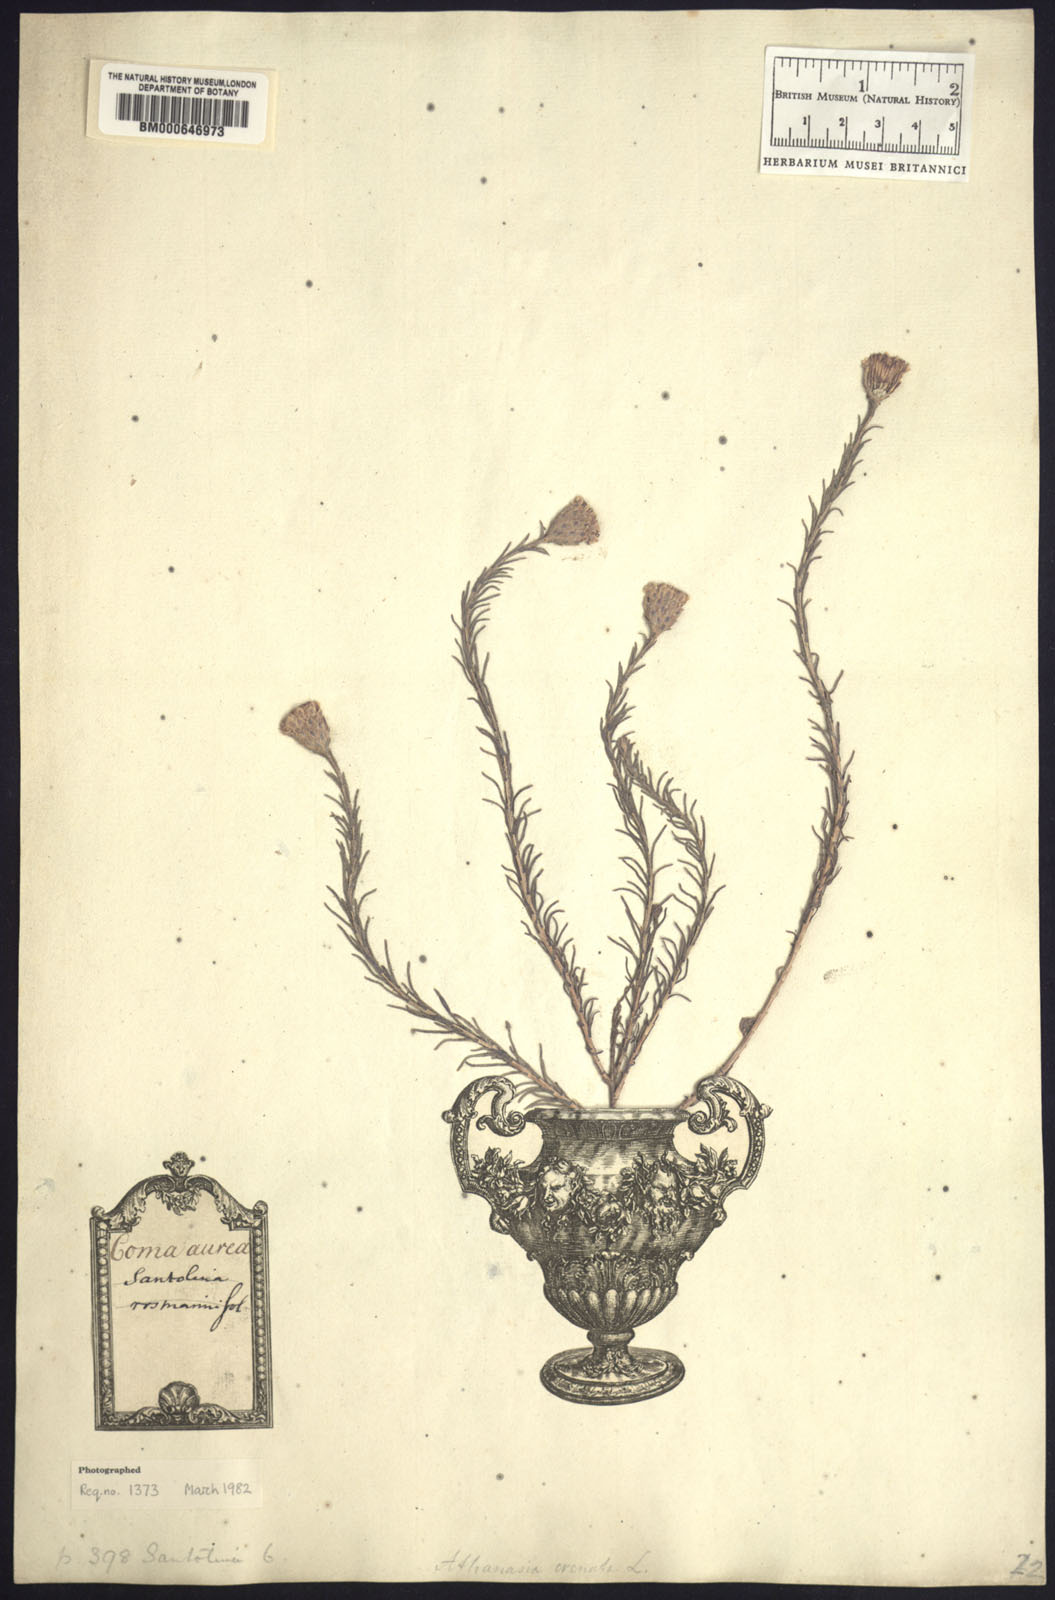 THE NATURAL HISTORY MUSEUM, LONDON
DEPARTMENT OF BOTANY
BM000646973
1 2
BRITISH MUSEUM (NATURAL HISTORY)
1 2 3 4 5
HERBARIUM MUSEI BRITANNICI
Coma aurea
Santolina
rosmarinifol.
Photographed
Req. no. 1373 March 1982
p. 398 6.
Athanasia crenata L.
22